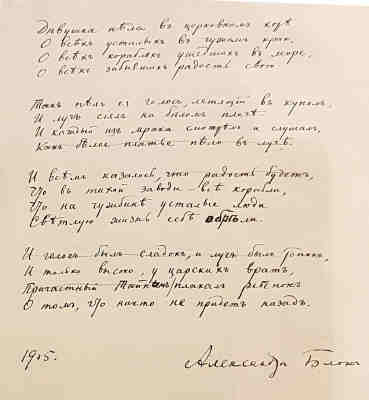 Дѣвушка пѣла въ церковномъ хорѣ
О всѣхъ усталыхъ въ чужомъ краю,
О всѣхъ корабляхъ ушедшихъ въ море,
О всѣхъ забывшихъ радость свою.
Такъ пѣлъ ея голосъ, летящій въ куполъ,
И лучъ сіялъ на бѣломъ плечѣ
И каждый изъ мрака смотрѣлъ и слушалъ,
Какъ бѣлое платье пѣло въ лучѣ.
И всѣмъ казалось, что радость будетъ,
Что въ тихой заводи всѣ корабли,
Что на чужбинѣ усталые люди
Свѣтлую жизнь себѣ обрѣли.
И голосъ былъ сладокъ, и лучъ былъ тонокъ,
И только высоко, у царскихъ вратъ,
Причастный Тайнамъ, плакалъ ребенокъ
О томъ, что никто не придетъ назадъ.
1905.
Александръ Блокъ